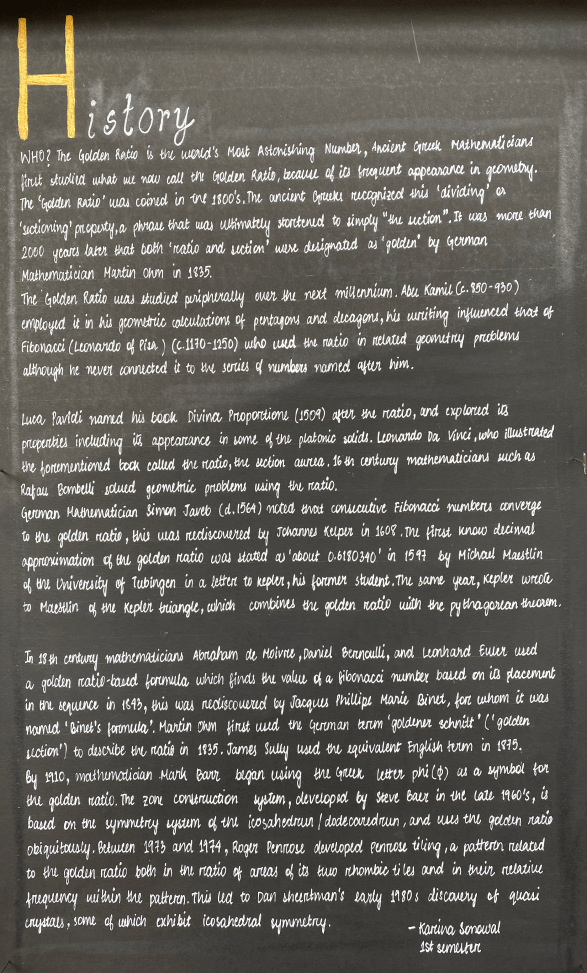 History
WHO? The Golden Ratio is the world's Most Astonishing Number, Ancient Greek Mathematicians
first studied what we now call the Golden Ratio, because of its frequent appearance in geometry.
The 'Golden Ratio' was coined in the 1800's. The ancient Greeks recognized this 'dividing' or
'sectioning' property, a phrase that was ultimately shortened to simply "the section". It was more than
2000 years later that both 'ratio and section' were designated as 'golden' by German
Mathematician Martin Ohm in 1835.
The Golden Ratio was studied peripherally over the next millennium. Abu Kamil (c.850-930)
employed it in his geometric calculations of pentagons and decagons, his writing influenced that of
Fibonacci (Leonardo of Pisa) (c.1170-1250) who used the ratio in related geometry problems
although he never connected it to the series of numbers named after him.
Luca Pavioli named his book Divina Proportione (1509) after the ratio, and explored its
properties including its appearance in some of the platonic solids. Leonardo Da Vinci, who illustrated
the forementioned book called the ratio, the section aurea. 16th century mathematicians such as
Rafael Bombelli solved geometric problems using the ratio.
German Mathematician Simon Javeb (d.1564) noted that consecutive Fibonacci numbers converge
to the golden ratio, this was rediscovered by Johannes Kelper in 1608. The first know decimal
approximation of the golden ratio was stated as 'about 0.6180340' in 1597 by Michael Maestlin
of the University of Tubingen in a letter to kepler, his former student. The same year, Kepler wrote
to Maestlin of the Kepler triangle, which combines the golden ratio with the pythagorean theorem.
In 18th century mathematicians Abraham de Moivre, Daniel Bernoulli, and Leonhard Euler used
a golden ratio-based formula which finds the value of a fibonacci number based on its placement
in the sequence in 1843, this was rediscovered by Jacques Phillipe Marie Binet, for whom it was
named 'Binet's formula'. Martin Ohm first used the German term 'goldener schnitt' ('golden
section') to describe the ratio in 1835. James Sully used the equivalent English term in 1875.
By 1910, mathematician Mark Barr began using the Greek letter phi (ϕ) as a symbol for
the golden ratio. The zone construction system, developed by Steve Baer in the late 1960's, is
based on the symmetry system of the icosahedrun/dodecaredrun, and uses the golden ratio
obiquitously. Between 1973 and 1974, Roger Penrose developed Penrose tiling, a pattern related
to the golden ratio both in the ratio of areas of its two rhombic tiles and in their relative
frequency within the pattern. This led to Dan sheertman's early 1980s discovery of quasi
crystals, some of which exhibit icosahedral symmetry.
- Karina Sonowal
1st semester